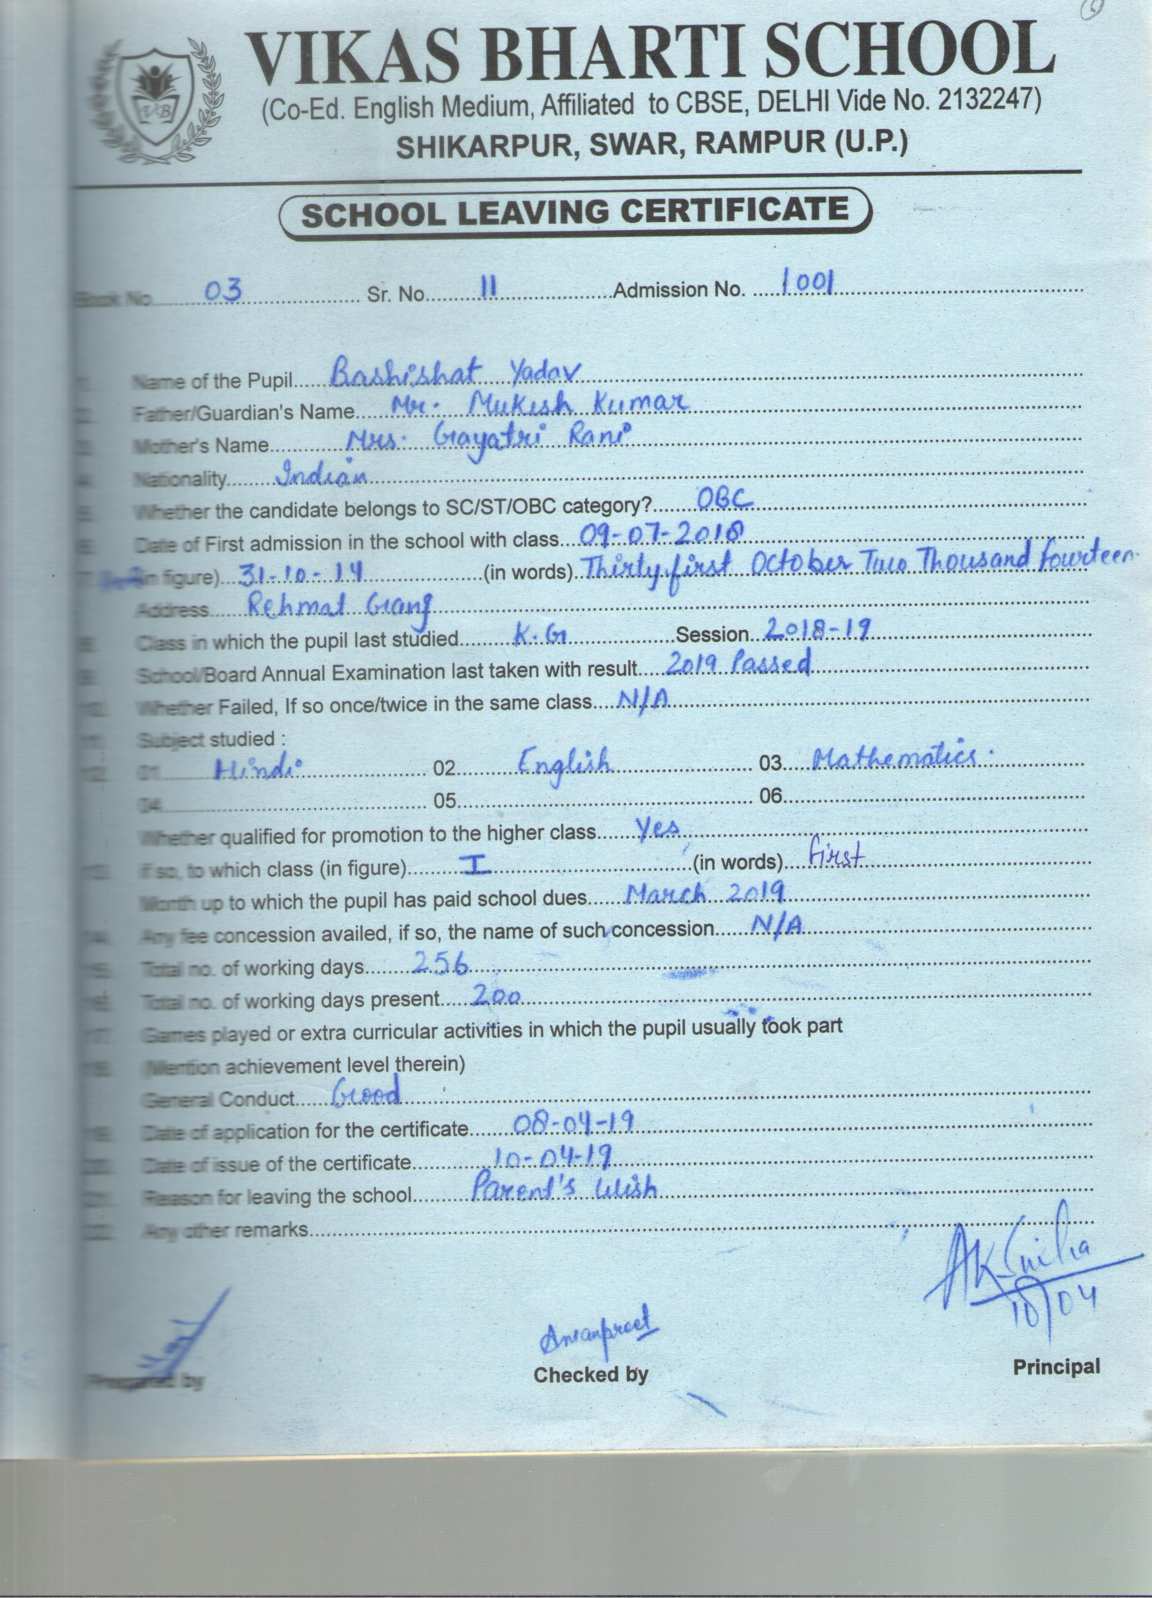 VIKAS BHARTI SCHOOL
(Co-Ed. English Medium, Affiliated to CBSE, DELHI Vide No. 2132247)
SHIKARPUR, SWAR, RAMPUR (U.P.)
SCHOOL LEAVING CERTIFICATE
Book No. 03 Sr. No. 11 Admission No. 1001
1. Name of the Pupil Bashishat Yadav
2. Father/Guardian's Name Mr. Mukesh Kumar
3. Mother's Name Mrs. Gayatri Rani
4. Nationality Indian
5. Whether the candidate belongs to SC/ST/OBC category? OBC
6. Date of First admission in the school with class 09-07-2018
7. (in figure) 31-10-14 (in words) Thirty first October Two Thousand fourteen.
Address Rehmat Ganj
8. Class in which the pupil last studied K.G Session 2018-19
9. School/Board Annual Examination last taken with result 2019 Passed
10. Whether Failed, If so once/twice in the same class N/A
11. Subject studied :
12. 01 Hindi 02 English 03 Mathematics.
04 05 06
Whether qualified for promotion to the higher class Yes
13. If so, to which class (in figure) I (in words) first
Month up to which the pupil has paid school dues March 2019
14. Any fee concession availed, if so, the name of such concession N/A
15. Total no. of working days 256
16. Total no. of working days present 200
17. Games played or extra curricular activities in which the pupil usually took part
18. (Mention achievement level therein)
General Conduct Good
19. Date of application for the certificate 08-04-19
20. Date of issue of the certificate 10-04-19
21. Reason for leaving the school Parent's Wish
22. Any other remarks
10/04
Amanpreet
Prepared by Checked by Principal